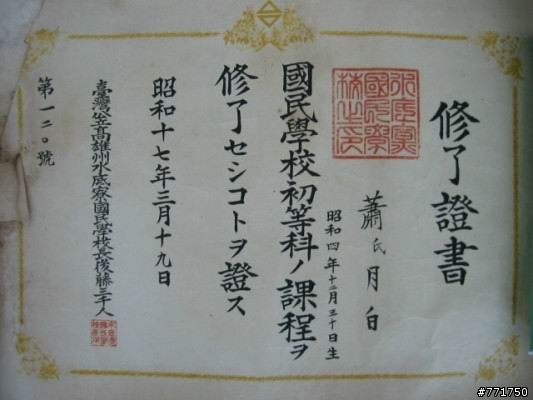 修了證書
蕭氏月白
昭和四年十二月三十日生
國民學校初等科ノ課程ヲ
修了セシコトヲ證ス
昭和十七年三月十九日
臺灣公立高雄州水底寮國民學校長後藤三千人
第一二〇號
#771750